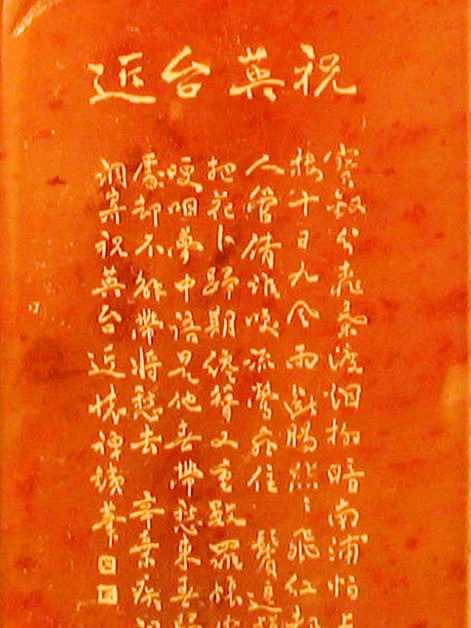 祝英台近
寶釵分桃葉渡烟柳暗南浦怕上
樓十日九風雨斷腸點々飛紅都
人管倩誰喚流鶯聲住 鬢邊
把花卜歸期纔簪又重數羅帳
哽咽夢中語是他春帶愁來春歸
處却不解帶將愁去 辛棄疾
調寄祝英台近